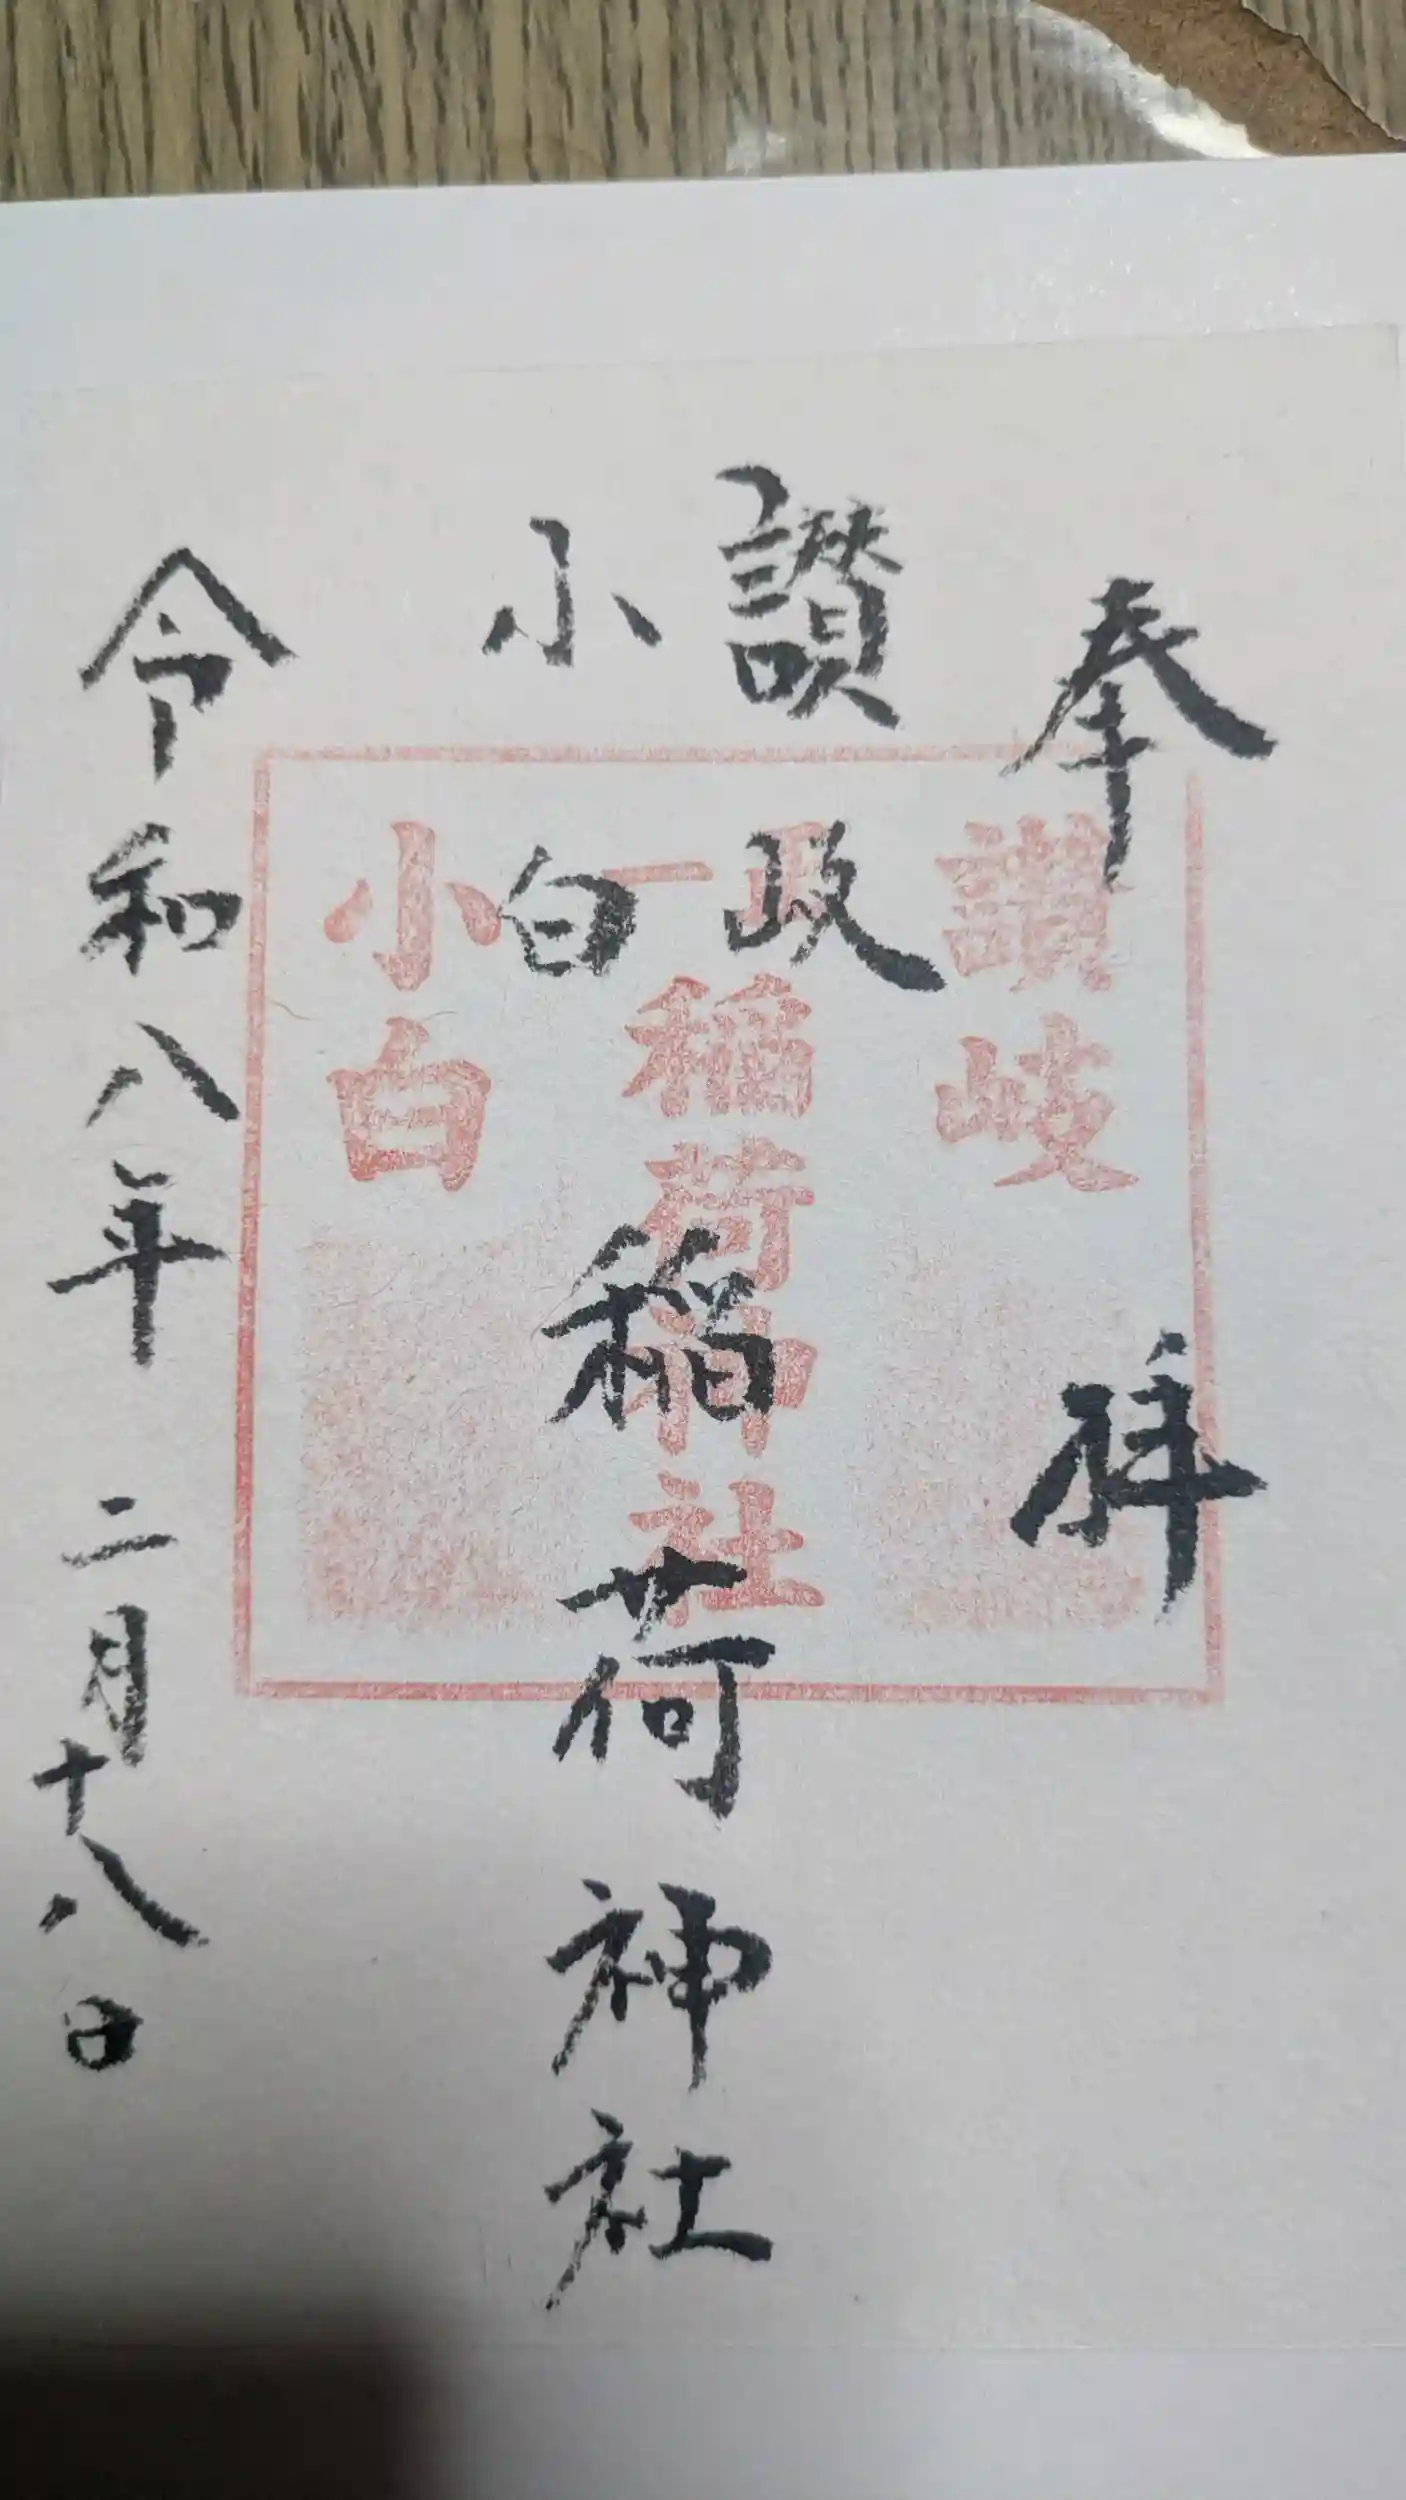 奉拝
讃岐
小白
稲荷神社
令和八年 二月十八日
讃岐
稲荷神社
小白